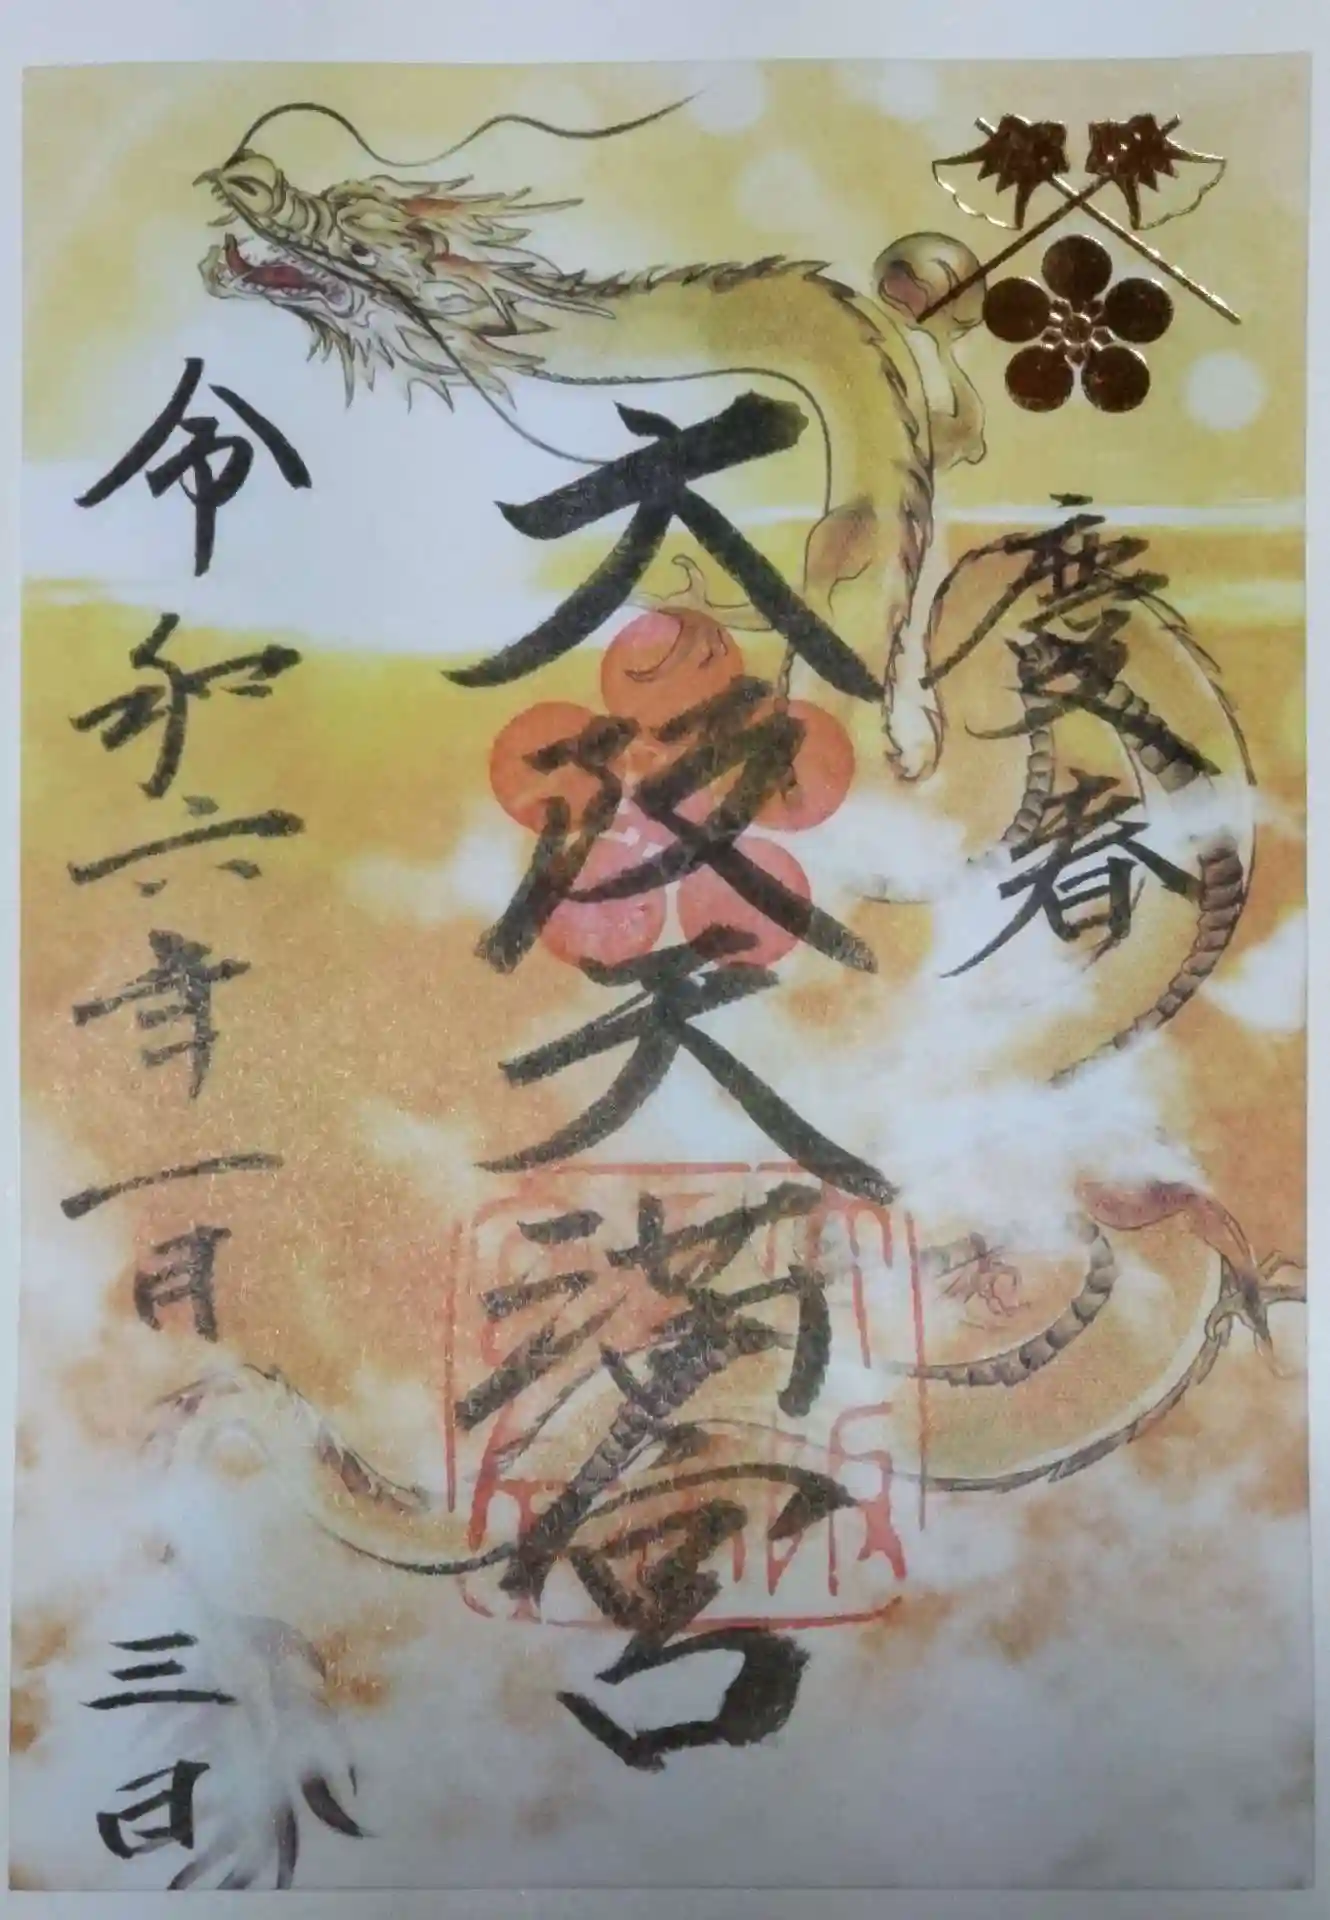 慶春
大阪天満宮
令和六年一月三日